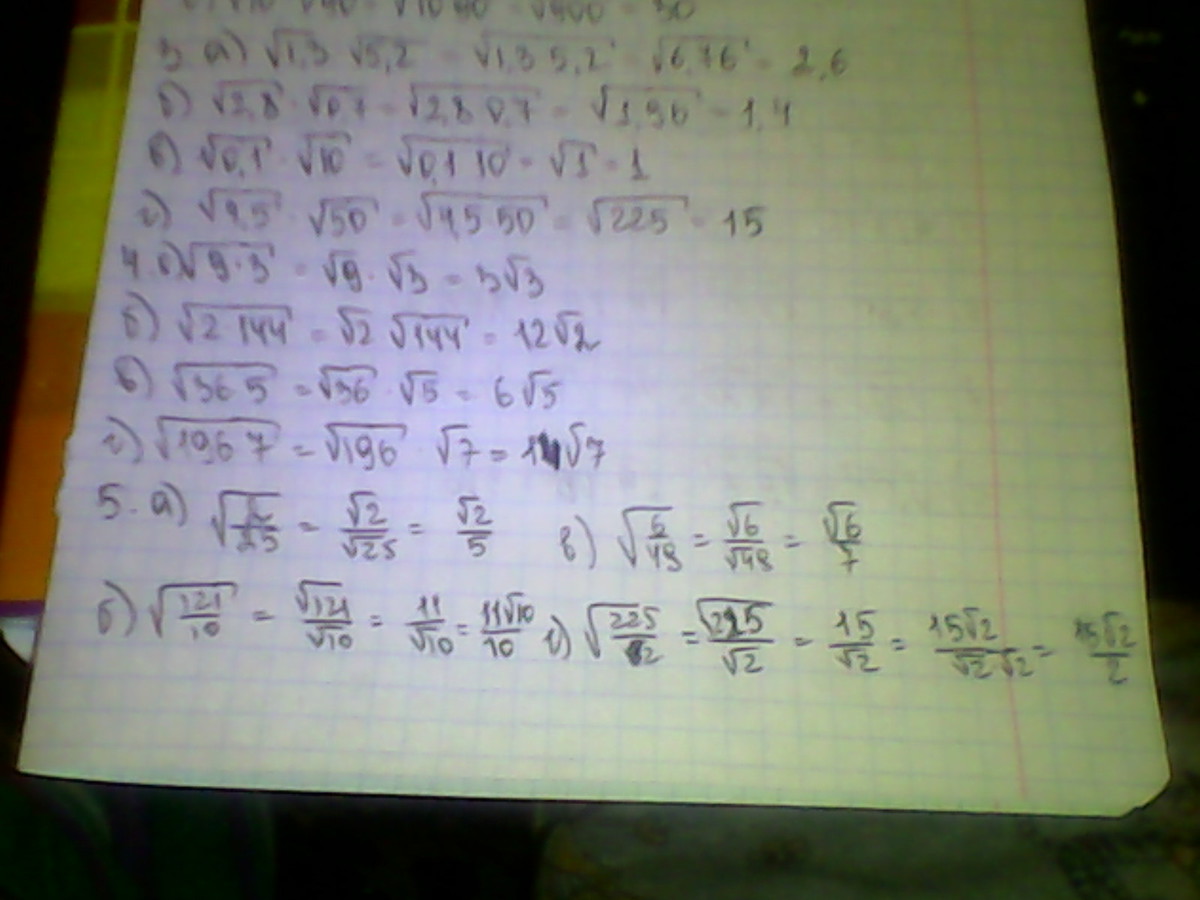 √10 √90 = √10 90 = √900 = 30
3 а) √1,3 √5,2 = √1,3 5,2 = √6,76 = 2,6
б) √2,8 · √0,7 = √2,8 0,7 = √1,96 = 1,4
в) √0,1 · √10 = √0,1 10 = √1 = 1
г) √4,5 · √50 = √4,5 50 = √225 = 15
4. а) √9·3 = √9 · √3 = 3√3
б) √2 144 = √2 √144 = 12√2
в) √36 5 = √36 · √5 = 6√5
г) √196 7 = √196 · √7 = 14√7
5. а) √2/25 = √2/√25 = √2/5 в) √6/49 = √6/√49 = √6/7
б) √121/10 = √121/√10 = 11/√10 = 11√10/10 г) √225/2 = √225/√2 = 15/√2 = 15√2/√2 √2 = 15√2/2